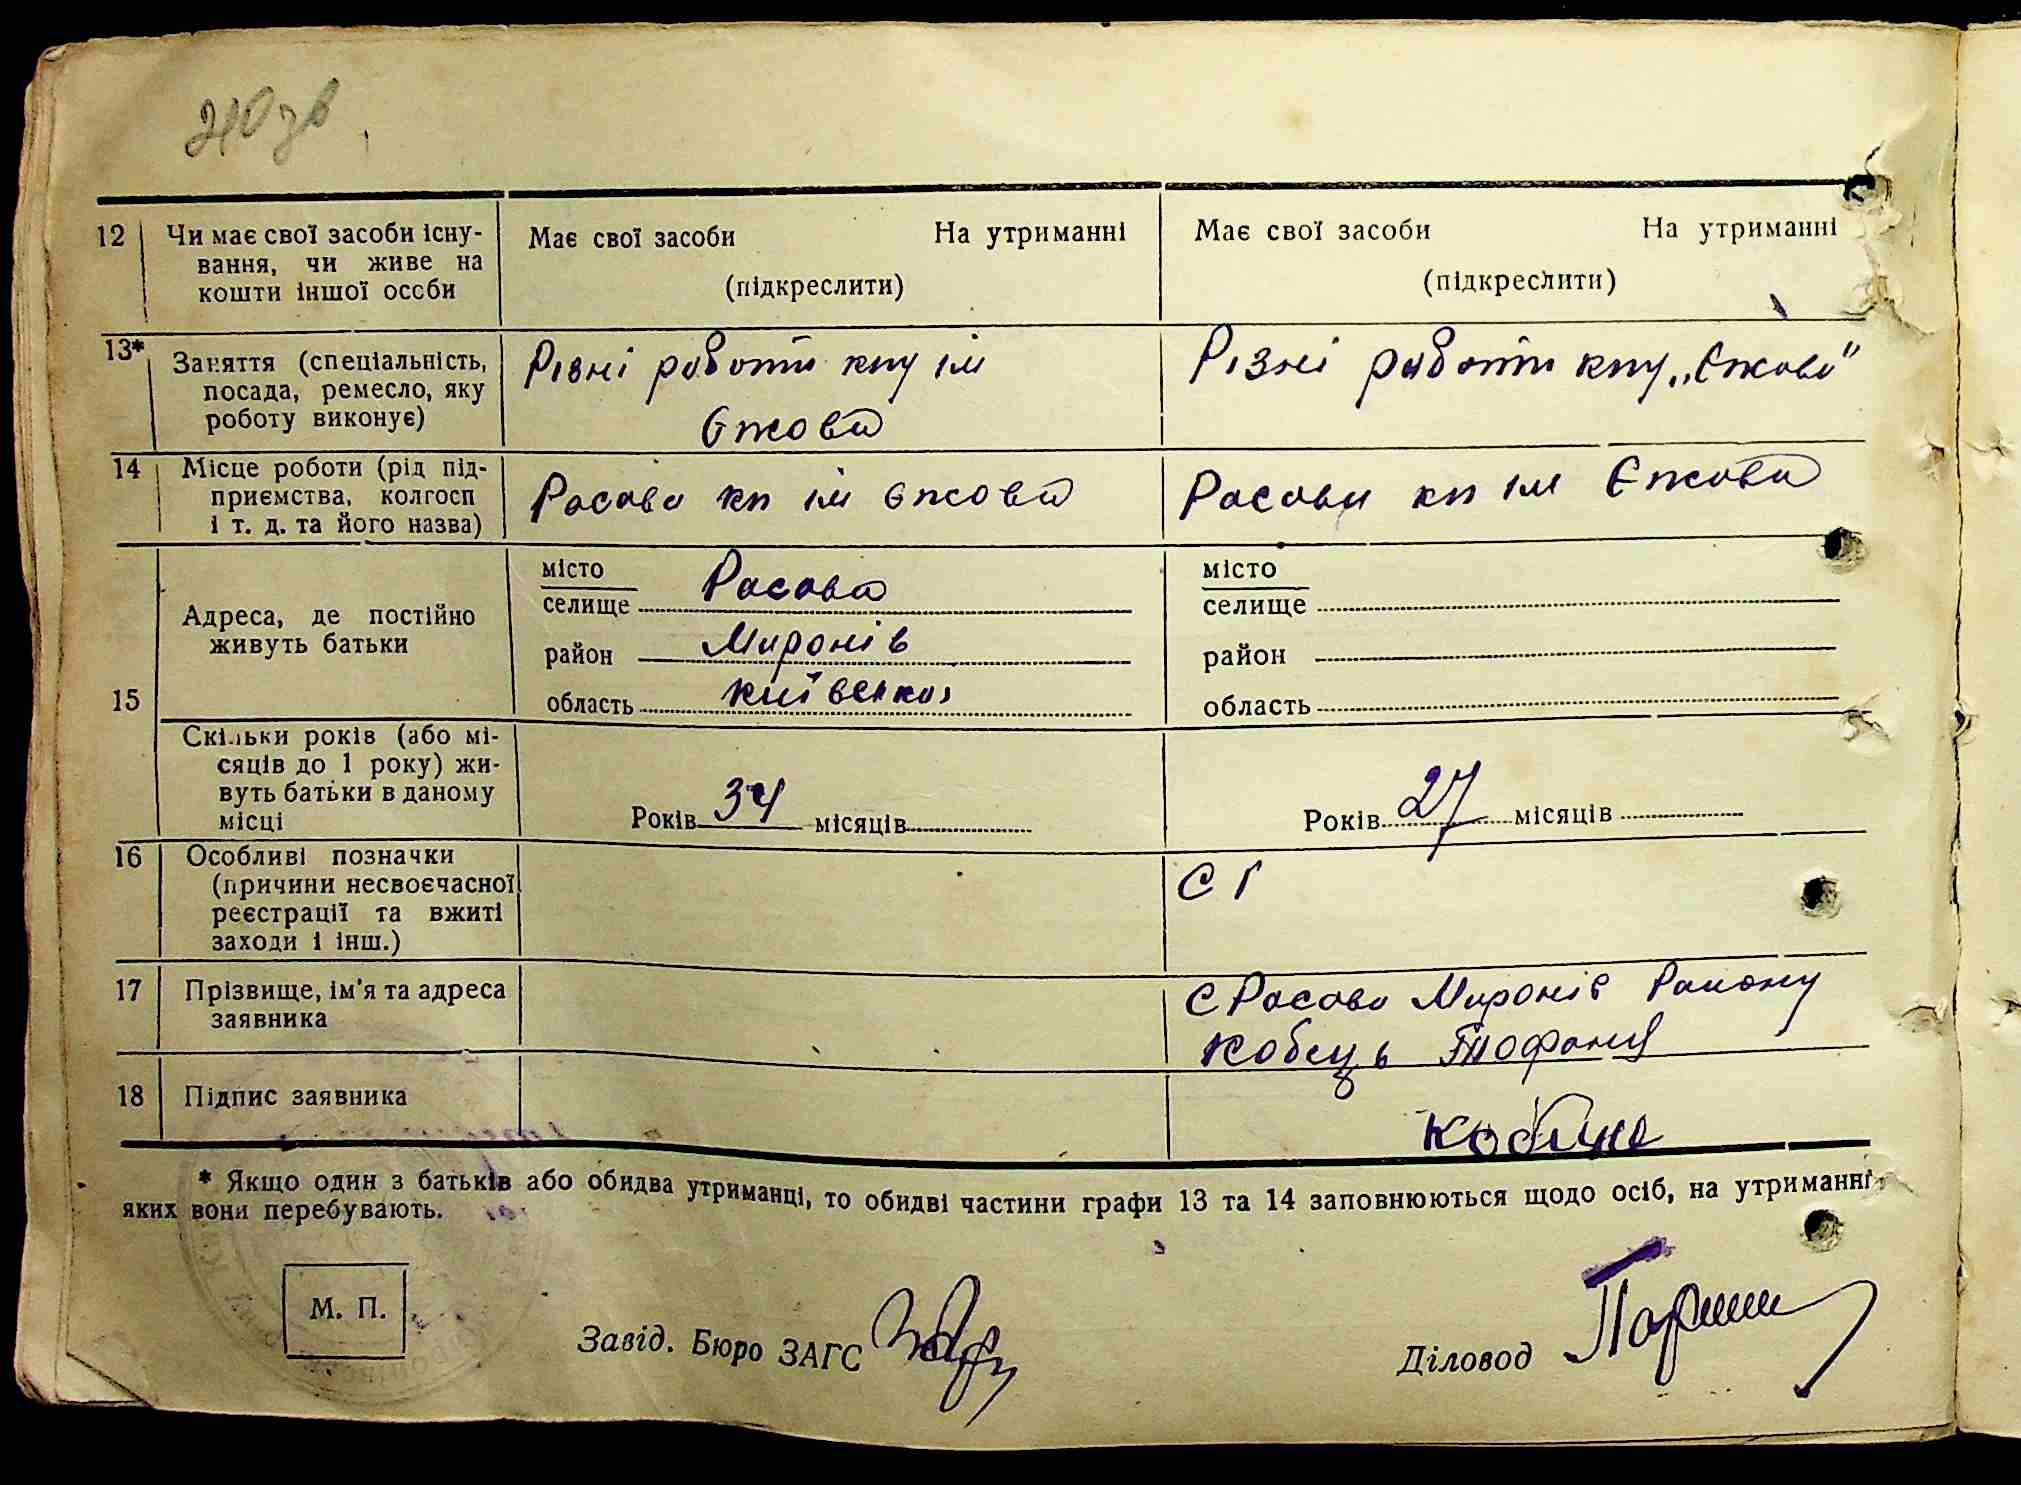 210 зв
12 Чи має свої засоби існу-
вання, чи живе на
кошти іншої особи
Має свої засоби На утриманні
(підкреслити)
Має свої засоби На утриманні
(підкреслити)
13* Заняття (спеціальність,
посада, ремесло, яку
роботу виконує)
Різні роботи кпу ім
Єжова
Різні роботи кпу „Єжова"
14 Місце роботи (рід під-
приємства, колгосп
і т. д. та його назва)
Росава кп ім Єжова
Росави кп ім Єжова
15 Адреса, де постійно
живуть батьки
місто
селище Росава
район Миронів
область Київської
місто
селище
район
область
Скільки років (або мі-
сяців до 1 року) жи-
вуть батьки в даному
місці
Років 34 місяців
Років 27 місяців
16 Особливі позначки
(причини несвоєчасної
реєстрації та вжиті
заходи і інш.)
С Г
17 Прізвище, ім'я та адреса
заявника
С Росава Миронів Району
Кобець
18 Підпис заявника
* Якщо один з батьків або обидва утриманці, то обидві частини графи 13 та 14 заповнюються щодо осіб, на утриманні
яких вони перебувають.
М. П.
Завід. Бюро ЗАГС
Діловод